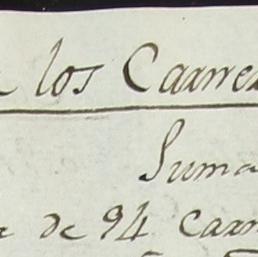 los Carne
Suma
de 94 Carn